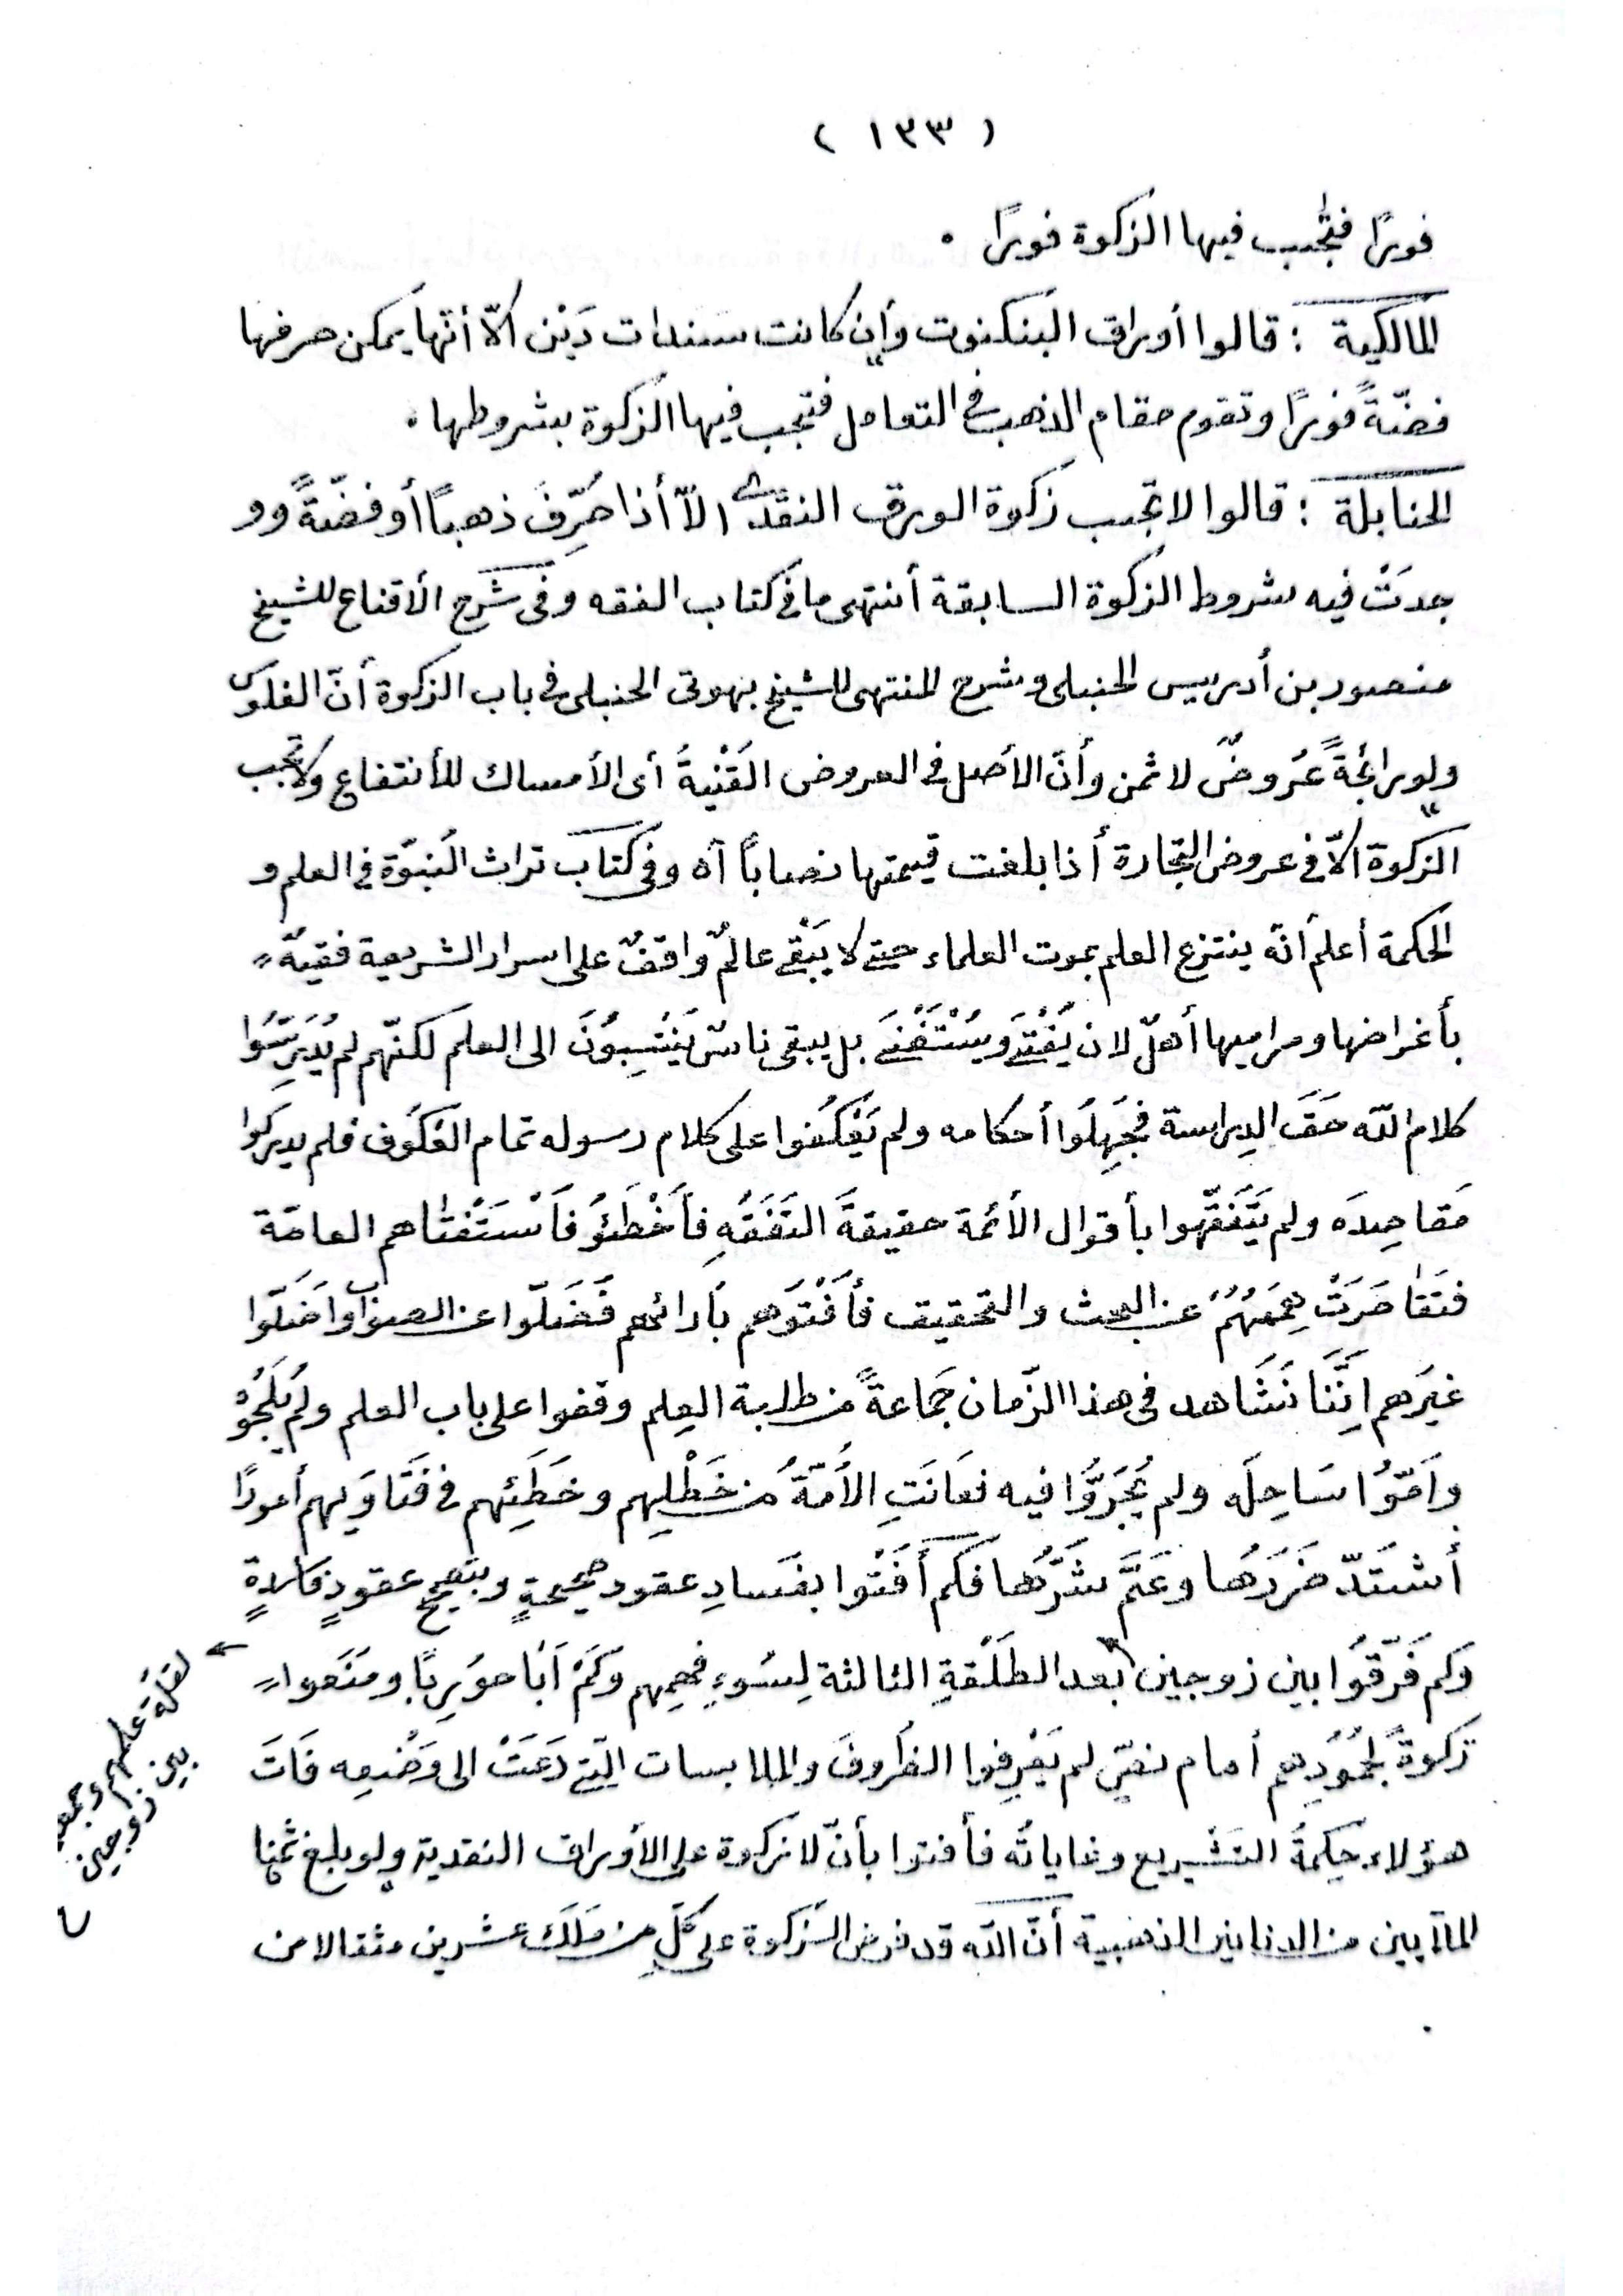 ( ١٣٣ )
فورًا فتجب فيها الزكوة فورًا .
المالكية : قالوا أوراق البنكنوت وأن كانت سندات دَيْن الاّ أنّها يمكن صرفها
فضّةً فورًا وتقوم مقام الذهب فى التعامل فتجب فيها الزكوة بشروطها .
الحنابلة : قالوا لا تجب زكوة الورق النقدى الاّ أذا صُرِّفَ ذهبًا أو فضّةً وو
جدَتْ فيه شروط الزكوة السابقة أنتهى ما فى كتاب الفقه وفى شَرح الأقناع للشيخ
منصور بن أدريس الحنبلى وشرح المنتهى للشيخ بهوتى الحنبلى فى باب الزكوة أنّ الفلوس
ولو رائجةً عُروضٌ لا ثمن وأنّ الأصل فى العروض القَنْيةُ أى الأمساك للأنتفاع ولا تجب
الزكوة الاّ فى عروض التجارة أذا بلغت قيمتها نصابًا آه وفى كتاب تراث النبوّة فى العلم و
الحكمة أعلم انّه ينتزع العلم بموت العلماء حتى لا يَبْقى عالمٌ واقفٌ على اسرار الشريعة فقيهٌ
بأغراضها ومراميها أهلٌ لان يُفْتِىَ ويُسْتَفْتَى بل يبقى ناسٌ يَنْتَسِبُونَ الى العلم لكنّهم لم يُدَرِّسُوا
كلام اللّه حَقَّ الدِراسة فجَهِلُوا أحكامه ولم يَعْكُفوا على كلام رسوله تمام العُكوف فلم يدركوا
مَقاصِدَه ولم يَتَفَقّهوا بأقوال الأئمة حقيقةَ التَفَقّهِ فأخْطَئوُ فَاَسْتَفْتاهم العامّة
فتَقاصَرَتْ هِمَمُهُمْ عن البحث والتحقيق فأفْتَوهم بأرائهم فضَلّوا عن الصواب واَضَلّوا
غيرَهم اِنَّنا نَشَاهد فى هذا الزّمان جَماعةً من طلابة العِلم وقفوا على باب العلم ولم يُلِجُوْ
واَمّوُا سَاحِلَه ولم يُجَرَّوا فيه فعَانَتِ الاُمّةُ من خَطْلِهم وخَطَئِهم فى فَتَاوَيهم أمورًا
أشتَدّ ضَرَرها وعَمَّ شَرُّها فكم أَفتَوا بفَسادِ عقود صحيحةٍ وبتصحيح عقودٍ فاسدةٍ
وكم فَرّقوُا بين زوجين بعد الطَلْقةِ الثالثة لِسُوءِ فهمِهم وكم اَباحوُ رِبًا ومنَعوا
زكوةً لجُمُودِهم أمام نصٍّ لم يَعْرِفوا الظُروفَ والملابسات التى دَعَتْ الى وَضْعِه فَاتَ
هؤلاء حِكمةُ التشريع وغاياتُه فأفتوا بأنّ لا زكوة على الأوراق النقدية ولو بلغ ثمنها
الملآيين من الدنانير الذهبية أنّ اللّه قد فرض الزكوة على كلّ من مَلَكَ عشرين مثقالا من
لقلّة علمهم وجمعوا
بين زوجين